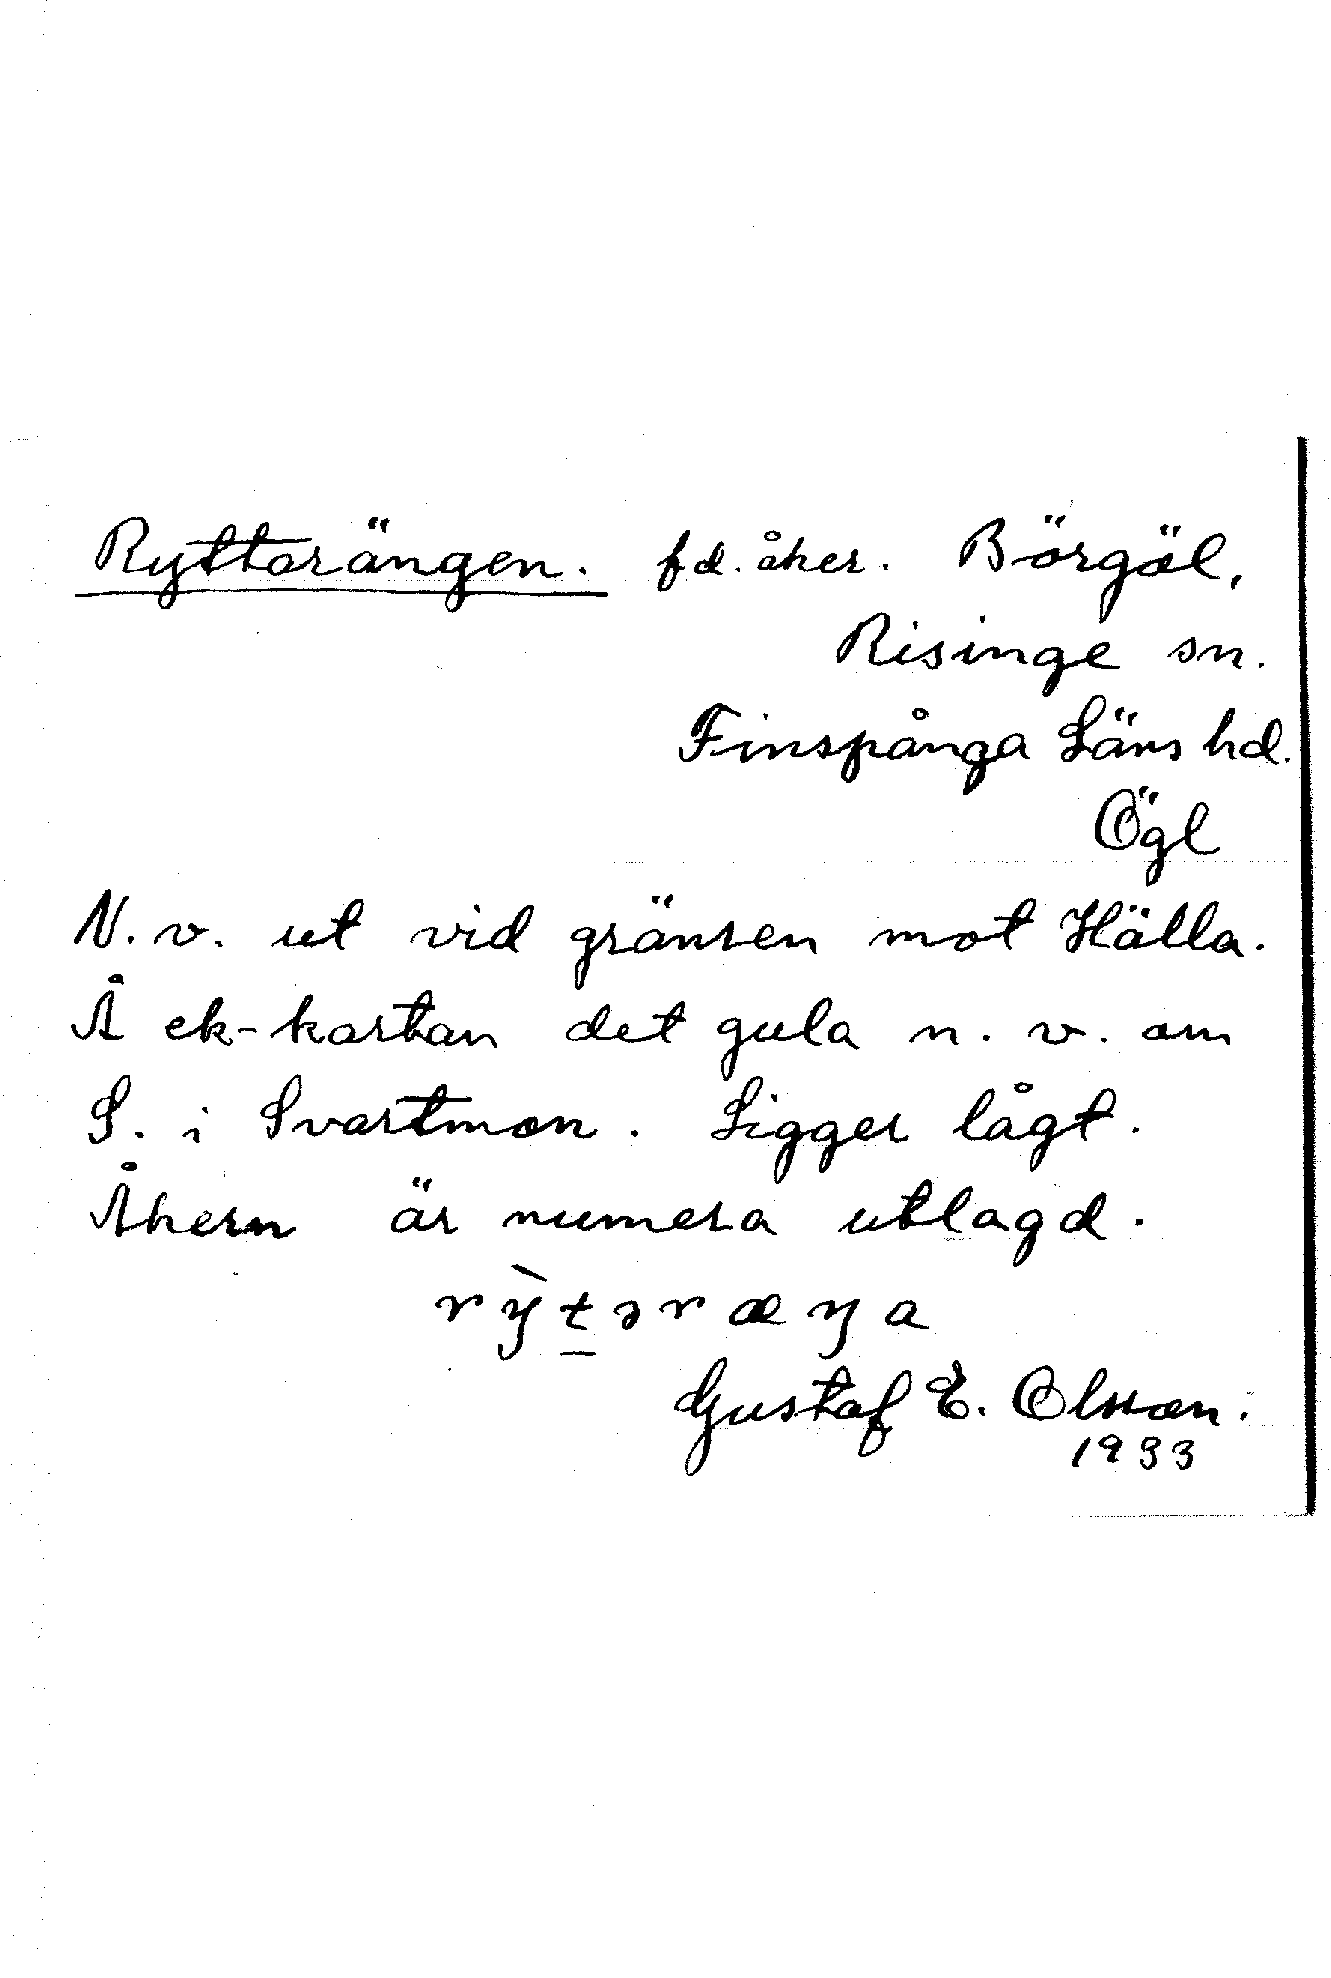 Ryttorängen. fd. åker. Börgöl,
Risinge sn.
Finspånga Läns hd.
Ögl
N. v. ut vid gränsen mot Hälla.
Å ek-kartan det gula n. v. om
S. i Svartmon. Ligger lågt.
Åkern är numera utlagd.
rỳtəræŋa
Gustaf E. Olsson.
1933